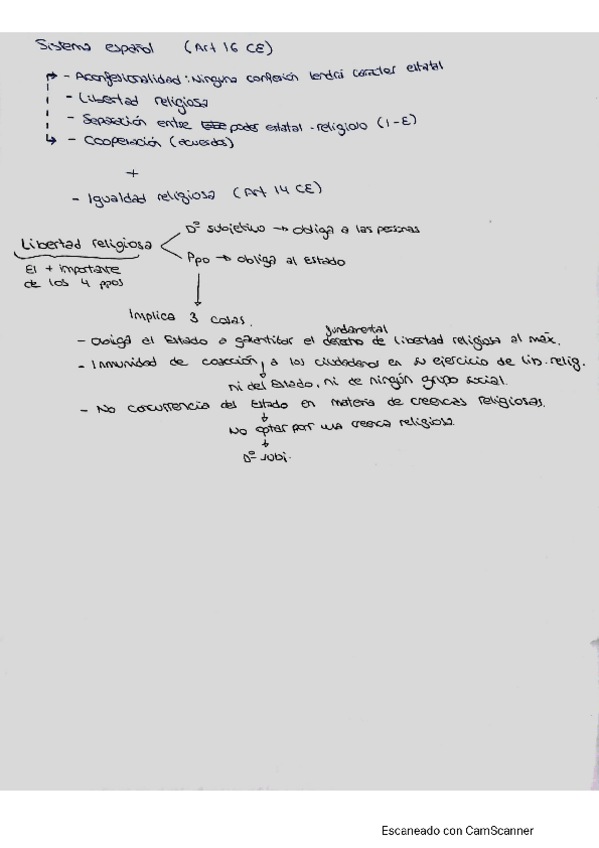 Sistema español (Art 16 CE)
- Aconfesionalidad: Ninguna confesión tendrá carácter estatal
- Libertad religiosa
- Separación entre poder estatal - religioso (I-E)
- Cooperación (acuerdos)
+
- Igualdad religiosa (Art 14 CE)
Dº subjetivo → obliga a las personas
Libertad religiosa
Ppo → obliga al Estado
El + importante
de los 4 ppos
Implica 3 cosas.
fundamental
- Obliga al Estado a garantizar el derecho de libertad religiosa al máx.
- Inmunidad de coacción, a los ciudadanos en su ejercicio de lib. relig.
ni del Estado, ni de ningún grupo social.
- No concurrencia del Estado en materia de creencas religiosas.
No optar por una creenca religiosa.
Dº subj.
Escaneado con CamScanner